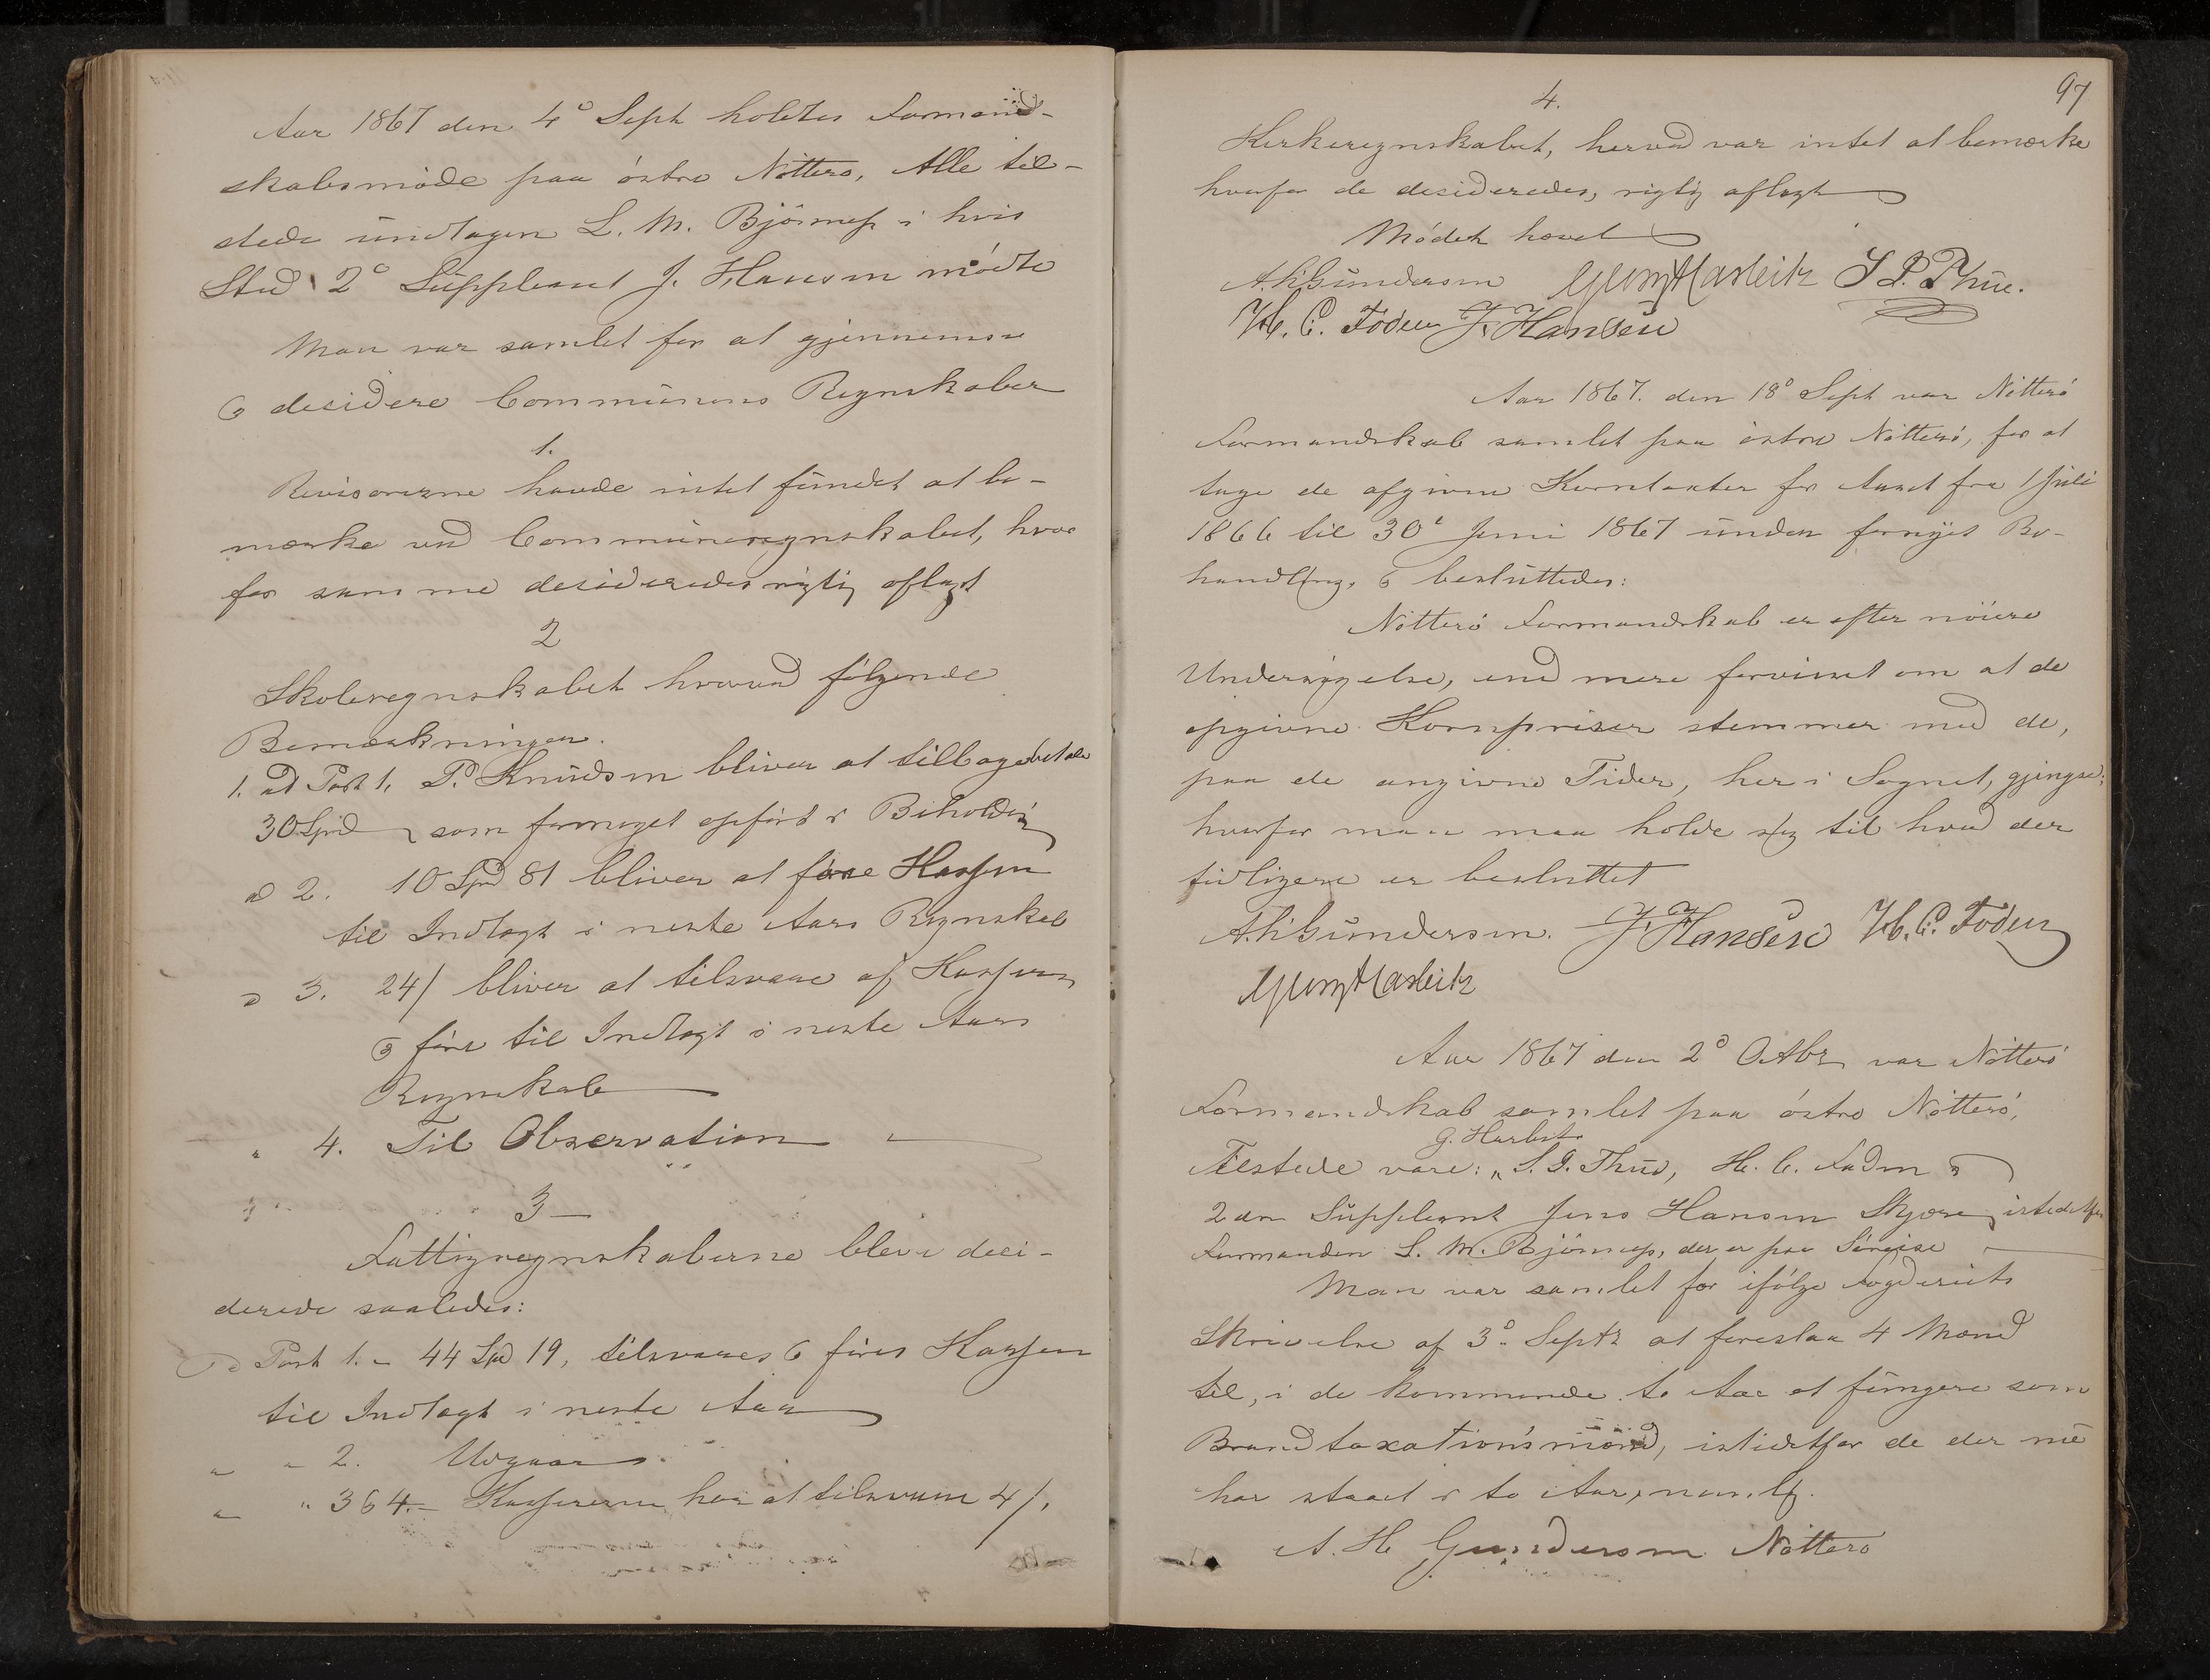 Aar 1867 den 4° Sept holdtes Formand-
skabsmöde paa östre Nötterö, Alle til-
stede undtagen L. M. Björness i hvis
Sted 2° Suppleant J. Hansen mödte
Man var samlet for at gjennemse
& desidere Communens Regnskaber
1.
Revisorerne havde intet fundet at be-
mærke ved Communeregnskabet, hvor
for samme desideredes rigtig aflagt
2
Skoleregnskabet hvorved fölgende
Bemærkninger.
1. ad Post 1. P. Knudsen bliver at tilbagebetale
30 Spd som formeget opfört i Beholdn
ad 2. 10 Spd 81 bliver at före Kassen
til Indtægt i neste Aars Regnskab
ad 3. 24 / bliver at tilsvare af Kasseren
& före til Indtægt i neste Aars
Regnskab
" 4. Til Observation
3
Fattigregnskaberne bleve desi-
derede saaledes:
ad Post 1. - 44 Spd 19, tilsvares & föres Kassen
til Indtægt i neste Aar
" " 2. Udgaar
" " 3 & 4. - Kassereren har at tilsvare 4 /.
97
4.
Kirkeregnskabet, herved var intet at bemærke
hvorfor de desideredes, rigtig aflagt
Mödet hævet
A. H. Gundersen G. Harbitz S P. Thue.
H. C. Foden J. Hansen
Aar 1867. den 18° Sept var Nötterö
Formandskab samlet paa östre Nötterö, for at
tage de afgivne Korntaxter for Aaret fra 1 Juli
1866 til 30te Juni 1867 under fornyet Be-
handling, & besluttedes:
Nötterö Formandskab er efter nöiere
Undersögelse, end mere forvisset om at de
opgivne Kornpriser stemmer med de,
paa de angivne Tider, her i Sognet, gjengse;
hvorfor man maa holde sig til hvad der
tidligere er besluttet
A. H. Gundersen. J. Hansen H. C. Foden
G. Harbitz
Aar 1867 den 2° Octbr var Nötterö
Formandskab samlet paa östre Nötterö,
G. Harbitz
Tilstede vare: " S. P. Thue, H. C. Foden &
2den Suppleant Jens Hansen Skjerve, istedetfor
Formanden L. M. Björness, der er paa Söreise
Man var samlet for ifölge Fogderiets
Skrivelse af 3° Septr at foreslaa 4 Mænd
til, i de kommende to Aar at fungere som
Brandtaxationsmænd, istedetfor de der nu
har staaet i to Aar, nemlig.
A. H. Gundersen Nötterö